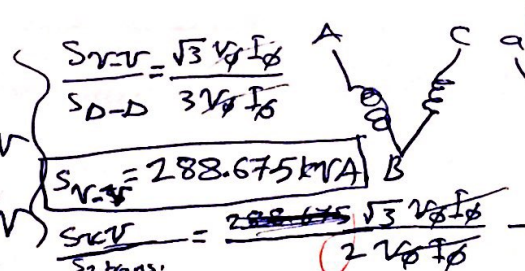 S_V-V / S_D-D = √3 VφIφ / 3VφIφ
A C a
S_V-V = 288.675 kVA
B
S_VV / S_2trans. = √3 VφIφ / 2 VφIφ